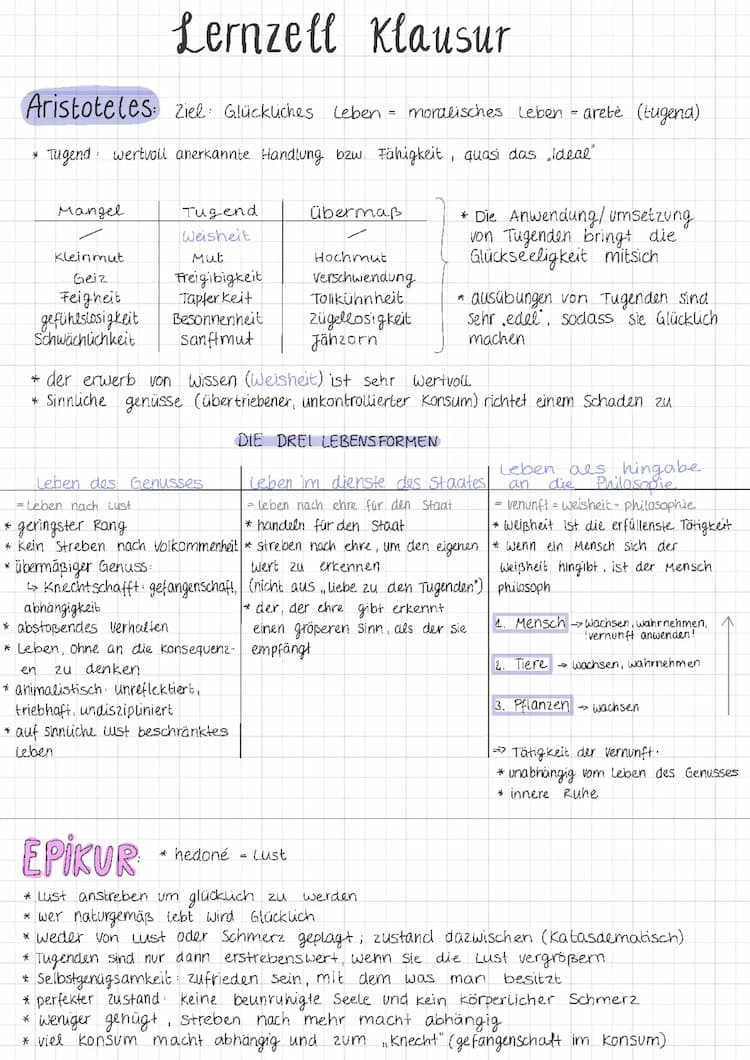 Lernzell Klausur
Aristoteles: Ziel: Glückliches Leben = moralisches Leben = aretè (tugend)
* Tugend: wertvoll anerkannte Handlung bzw. Fähigkeit, quasi das "Ideal"
Mangel Tugend Übermaß
— Weisheit —
Kleinmut Mut Hochmut
Geiz Freigibigkeit Verschwendung
Feigheit Tapferkeit Tollkühnheit
gefühlslosigkeit Besonnenheit Zügellosigkeit
Schwächlichkeit Sanftmut Jähzorn
* Die Anwendung/Umsetzung
von Tugenden bringt die
Glückseeligkeit mitsich
* ausübungen von Tugenden sind
sehr "edel", sodass sie Glücklich
machen
* der erwerb von Wissen (Weisheit) ist sehr Wertvoll
* Sinnliche genüsse (übertriebener, unkontrollierter Konsum) richtet einem Schaden zu
DIE DREI LEBENSFORMEN
Leben des Genusses
= Leben nach Lust
* geringster Rang
* kein Streben nach Volkommenheit
* übermäßiger Genuss:
↳ Knechtschafft: gefangenschaft,
abhängigkeit
* abstoßendes verhalten
* Leben, ohne an die Konsequenz-
en zu denken
* animalistisch: unreflektiert,
triebhaft, undiszipliniert
* auf sinnliche Lust beschränktes
Leben
Leben im dienste des Staates
= leben nach ehre für den Staat
* handeln für den Staat
* streben nach ehre, um den eigenen
Wert zu erkennen
(nicht aus "liebe zu den Tugenden")
* der, der ehre gibt erkennt
einen größeren Sinn, als der sie
empfängt
Leben als hingabe
an die Philosopie
= venunft = weisheit = philosophie
* Weißheit ist die erfüllenste Tätigkeit
* wenn ein Mensch sich der
weißheit hingibt, ist der Mensch
philosoph
1. Mensch → wachsen, wahrnehmen,
vernunft anwenden!
2. Tiere → wachsen, wahrnehmen
3. Pflanzen → wachsen
⇒ Tätigkeit der vernunft:
* unabhängig vom Leben des Genusses
* innere Ruhe
EPIKUR: * hedoné = Lust
* Lust anstreben um glücklich zu werden
* wer naturgemäß lebt wird Glücklich
* weder von Lust oder Schmerz geplagt; zustand dazwischen (Katasdematisch)
* Tugenden sind nur dann erstrebenswert, wenn sie die Lust vergrößern
* Selbstgenügsamkeit: zufrieden sein, mit dem was man besitzt
* perfekter zustand: keine beunruhigte Seele und kein körperlicher Schmerz
* weniger genügt, streben nach mehr macht abhängig
* viel konsum macht abhängig und zum "Knecht" (gefangenschaft im Konsum)